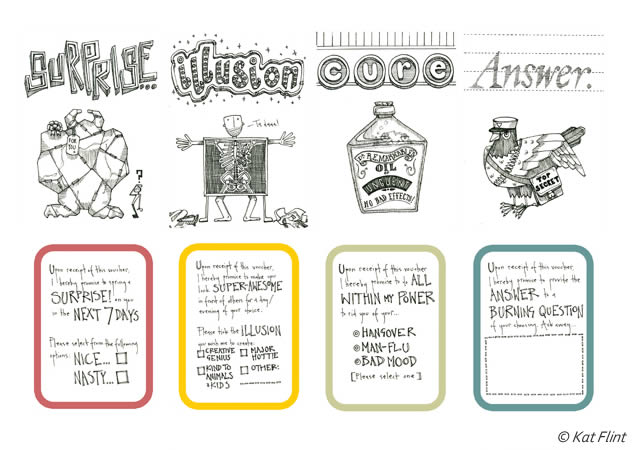 SURPRISE...
FOR YOU
?
Upon receipt of this voucher,
I hereby promise to spring a
SURPRISE! on you
in the NEXT 7 DAYS
Please select from the following
options:
NICE...
NASTY...
illusion
Ta daaa!
Upon receipt of this voucher,
I hereby promise to make you
look SUPER-AWESOME
in front of others for a day/
evening of your choice.
Please tick the ILLUSION
you wish me to create:
CREATIVE GENIUS
MAJOR HOTTIE
KIND TO ANIMALS & KIDS
OTHER:
cure
REMARKABLE
OIL
UNGUENT
NO BAD EFFECTS!
Upon receipt of this voucher
I hereby promise to do ALL
WITHIN MY POWER
to rid you of your...
HANGOVER
MAN-FLU
BAD MOOD
[Please select one]
Answer.
TOP SECRET
Upon receipt of this voucher,
I hereby promise to provide the
ANSWER to a
BURNING QUESTION
of your choosing. Ask away...
© Kat Flint